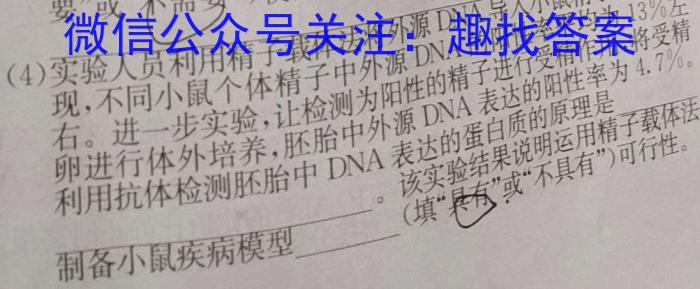 要”或“不需要”
微信公众号关注：趣找答案
(4)实验人员利用精子载体法将外源DNA导入小鼠精
现，不同小鼠个体精子中外源DNA 率 为13%左
右。进一步实验，让检测为阳性的精子进行受精 将受精
卵进行体外培养，胚胎中外源DNA表达的阳性率为4.7%。
利用抗体检测胚胎中DNA表达的蛋白质的原理是
。该实验结果说明运用精子载体法
制备小鼠疾病模型 (填“具有”或“不具有”)可行性。